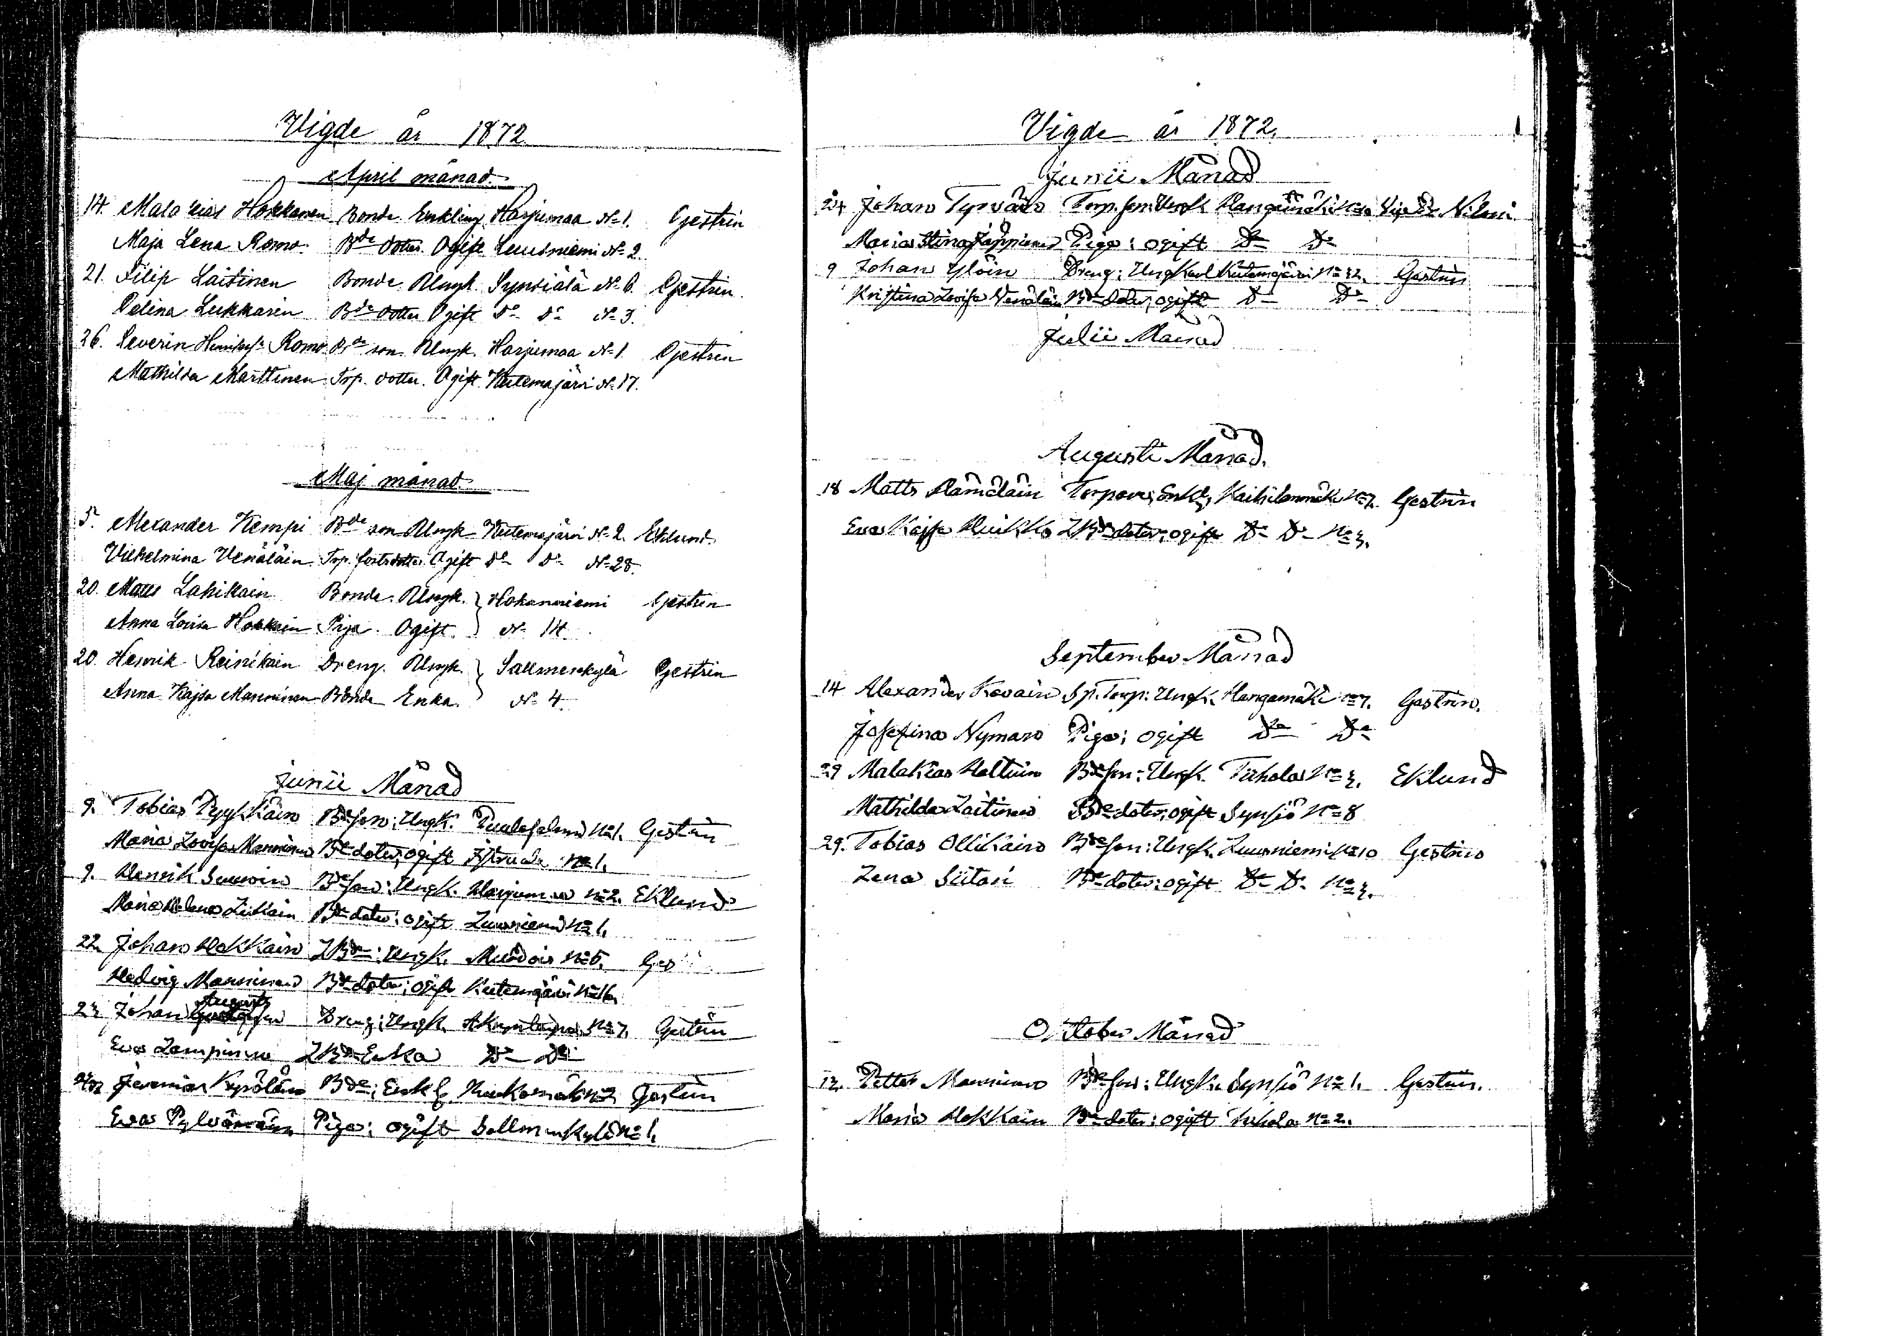 Vigde år 1872
April månad.
14. Malakias Hokkanen Bonde Enkling Harjumaa No 1. Gestrin
Maja Lena Romo Bde dotter Ogift Leusniemi No 2.
21. Filip Laitinen Bonde Ungk. Synsiälä No 8. Gestrin.
Celina Liukkarin Bde dotter Ogift Do Do No 3.
26. Severin Romo Bde son Ungk. Harjumaa No 1 Gestrin
Mathilda Marttinen Trp. dotter. Ogift. Kutemajärvi No 17.
Maj månad
5. Alexander Kempi Bde son Ungk. Kutemajärvi No 2. Eklund
Vilhelmina Venäläin Trp. dotter Ogift Do Do No 28.
20. Matts Lahikain Bonde. Ungk. Hokanniemi Gestrin
Anna Lovisa Hokkain Piga. Ogift. No 14.
20. Henrik Reinikain Dreng. Ungk. Sallmenkylä Gestrin
Anna Kajsa Manninen Bonde Enka. No 4.
Junii Månad
9. Tobias Pyykkäin Bde son; Ungk. No 1. Gestrin
Maria Lovisa Manninen Bde doter; ogift No 1.
9. Henrik Suuroin Bde son; Ungk. Harjumaa No 2. Eklund
Maria Helena Liukain Bde doter; ogift No 1.
22. Johan Hokkain Ungk. No 5. Ges
Hedvig Manninen Bde doter; ogift Kutemajärvi No 16.
23. Johan August Dreng; Ungk. No 7. Gestrin
Eva Lampinen Enka Do Do
Jeremias Kypöläin Bde; Enkl. No 2 Gestrin
Eva Pylvänäin Piga; ogift Sallmenkylä No 1.
Vigde år 1872.
Junii Månad
24 Johan Tyrväin Torp. son: Ungk Hangamäki
Maria Stina Jäppinen Piga; ogift Do Do
9 Johan Ylöin Dreng; Ungkarl Kutemajärvi No 32. Gestrin
Kristina Lovisa Venäläin Bde doter; ogift Do Do
Julii Månad
Augusti Månad.
18 Matts Hämäläin Torpare; Enkl; Kaihilanmäki No 7. Gestrin
Eva Kajsa Kuikka doter; ogift Do Do No 3.
September Månad
14 Alexander Kovain Sp. Torp: Ungk. Hangamäki No 7. Gestrin.
Josefina Nyman Piga; ogift Do Do
29 Malakias Holtuin Bde son: Ungk. Tuhola No 3. Eklund
Mathilda Laitinen Bde doter; ogift Synsiö No 8
29. Tobias Ollikain Bde son: Ungk. Leusniemi No 10 Gestrin
Lena Siitari Bde doter; ogift Do Do No 3.
October Månad
13. Petter Manninen Bde son; Ungk. Synsiö No 1. Gestrin.
Maria Hokkain Bde doter; ogift Tuhola No 2.